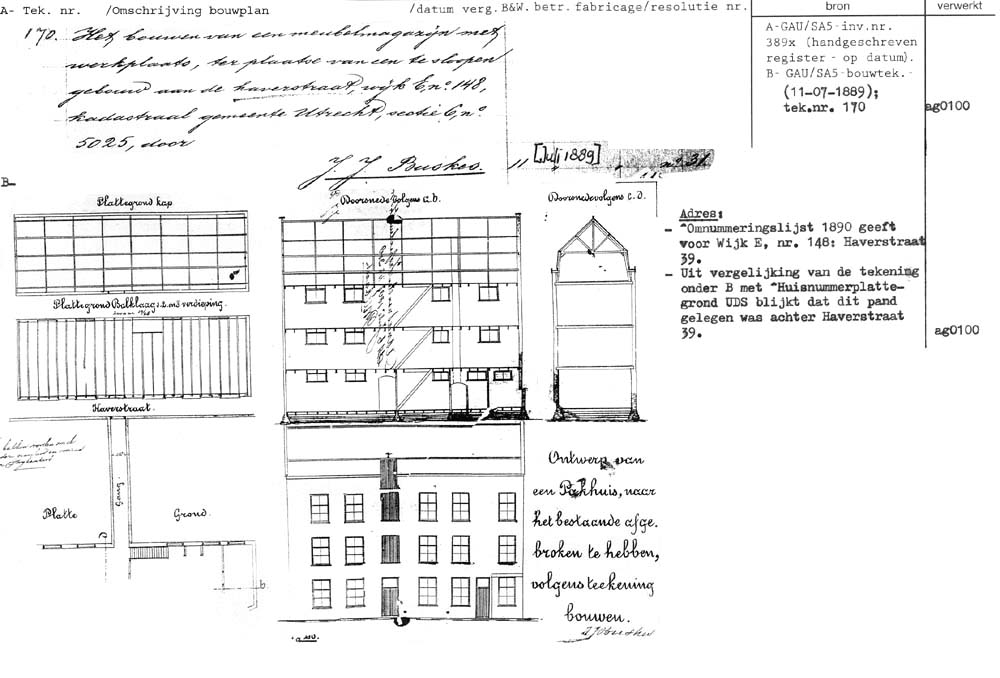 A- Tek. nr. /Omschrijving bouwplan /datum verg.B&W. betr. fabricage/resolutie nr. bron verwerkt
170. Het bouwen van een meubelmagazijn met
werkplaats, ter plaatse van een te sloopen
gebouw aan de Haverstraat, wijk E, no. 148,
kadastraal gemeente Utrecht, sectie C, no.
5025, door
J. J. Buskes. " [Juli 1889] no. 31
A-GAU/SA5-inv.nr.
389x (handgeschreven
register - op datum).
B- GAU/SA5-bouwtek. -
(11-07-1889);
tek.nr. 170
ag0100
B-
Plattegrond kap
Doorsnede volgens a.b.
Doorsnede volgens c.d.
Plattegrond Balklaag 1e. en 2e verdieping.
Haverstraat.
Gang.
Platte Grond.
b.
Adres:
- ^Omnummeringslijst 1890 geeft
voor Wijk E, nr. 148: Haverstraat
39.
- Uit vergelijking van de tekening
onder B met ^Huisnummerplatte-
grond UDS blijkt dat dit pand
gelegen was achter Haverstraat
39.
ag0100
Ontwerp van
een Pakhuis, naar
het bestaande afge.
broken te hebben,
volgens teekening
bouwen.
J J Buskes